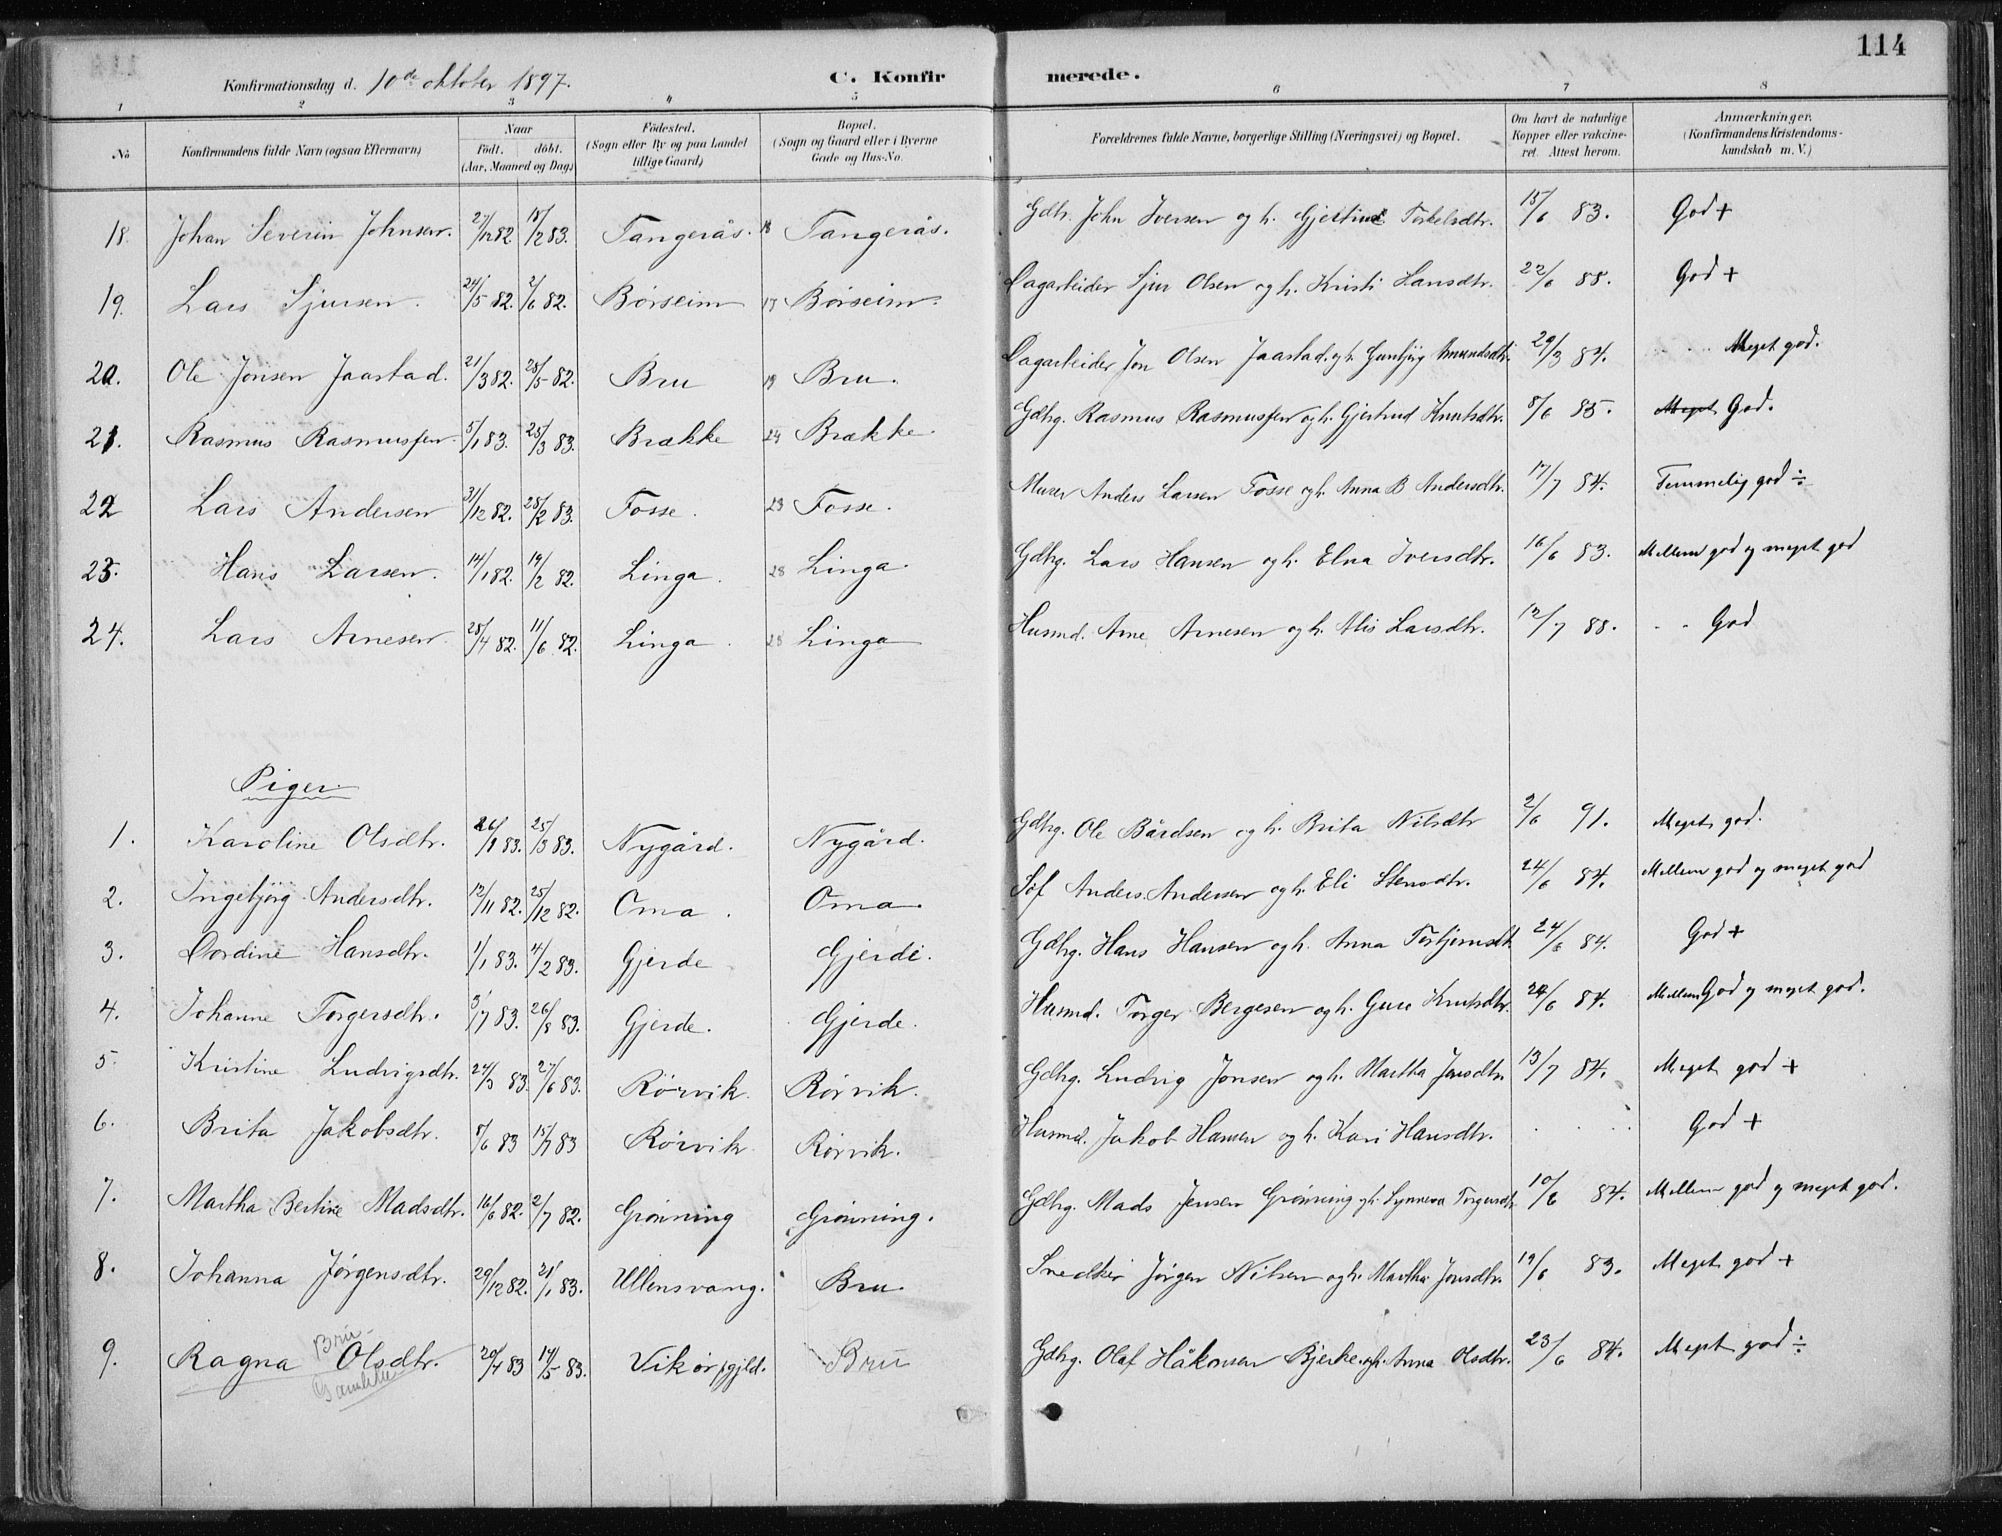 114
Konfirmationsdag d. 10de oktober 1897. C. Konfirmerede.
1 2 3 4 5 6 7 8
No Konfirmandens fulde Navn (ogsaa Efternavn) Naar Födt. döbt. (Aar, Maaned og Dag) Födested. (Sogn eller By og paa Landet tillige Gaard) Bopæl. (Sogn og Gaard eller i Byerne Gade og Hus-No. Forældrenes fulde Navne, borgerlige Stilling (Næringsvei) og Bopæl. Om havt de naturlige Kopper eller vakcineret. Attest herom. Anmærkninger. (Konfirmandens Kristendomskundskab m. V.)
18. Johan Severin Johnsen. 27/12 82 18/2 83. Tangerås. 18 Tangerås. Gdbr. John Iversen og h. Gjertine Torkelsdtr. 15/6 83. God +
19. Lars Sjursen. 24/5 82. 2/6 82. Börseim 17 Börseim. Dagarbeider Sjur Olsen og h. Kristi Hansdtr. 22/6 88. God +
20. Ole Jonsen Jaastad. 21/3 82. 28/5 82. Bru 19 Bru. Dagarbeider Jon Olsen Jaastad og h. Gunbjörg Amundsdtr. 29/3 84. Meget god.
21. Rasmus Rasmussen. 5/1 83. 25/3 83. Brække 24 Brække. Gdbrg. Rasmus Rasmussen og h. Gjertrud Knutsdtr. 8/6 85. Meget God.
22 Lars Andersen 31/12 82. 28/2 83. Fosse. 23 Fosse. Murer Anders Larsen Fosse og h. Anna B Andersdtr. 17/7 84. Temmelig god ÷
23. Hans Larsen. 14/1 82. 19/2 82. Linga. 28 Linga. Gdbrg. Lars Hansen og h. Elna Iversdtr. 16/6 83. Mellem god og meget god
24. Lars Arnesen. 28/4 82. 11/6 82. Linga. 28 Linga Husmd. Arne Arnesen og h. Alis Larsdtr. 12/7 88. God
Piger.
1. Karoline Olsdtr. 26/1 83. 25/3 83. Nygård. Nygård. Gdbrg. Ole Bårdsen og h. Brita Nilsdtr 2/6 91. Meget god.
2. Ingebjörg Andersdtr. 12/11 82. 25/12 82. Oma. Oma. Anders Andersen og h. Eli Stensdtr. 24/6 84. Mellem god og meget god
3. Dordine Hansdtr. 1/1 83. 4/2 83. Gjerde Gjerde. Gdbrg. Hans Hansen og h. Anna Torbjörnsdt. 24/6 84. God +
4. Johanne Torgersdtr. 3/7 83. 26/8 83. Gjerde. Gjerde. Husmd. Torger Bergesen og h. Guro Knutsdtr. 24/6 84. Mellem God og meget god.
5 Kristine Ludvigsdtr. 24/3 83. 27/6 83. Rörvik. Rörvik. Gdbrg. Ludvig Jonsen og h. Martha Jonsdtr. 13/7 84. Meget god +
6. Brita Jakobsdtr. 8/6 83 15/7 83 Rörvik Rörvik. Husmd. Jakob Hansen og h. Kari Hansdtr. God +
7. Martha Bertine Madsdtr. 16/6 82. 2/7 82. Grönning Grönning. Gdbrg. Mads Jensen Grönning og h. Synneva Torgersdtr. 10/6 84. Mellem god og meget god.
8. Johanna Jörgensdtr. 29/12 82. 21/1 83. Ullensvang. Bru. Snedker Jörgen Nilsen og h. Martha Jonsdtr. 19/6 83. Meget god +
Bru
9. Ragna Olsdtr. 20/4 83 14/5 83. Vikör pgjld. Bru Gdbrg. Olaf Håkonsen Bjerke og h. Anna Olsdtr. 23/6 84. Meget god ÷